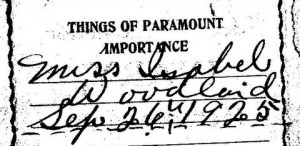 THINGS OF PARAMOUNT
IMPORTANCE
Miss Isabel
Woodlaid
Sep. 26, 1925